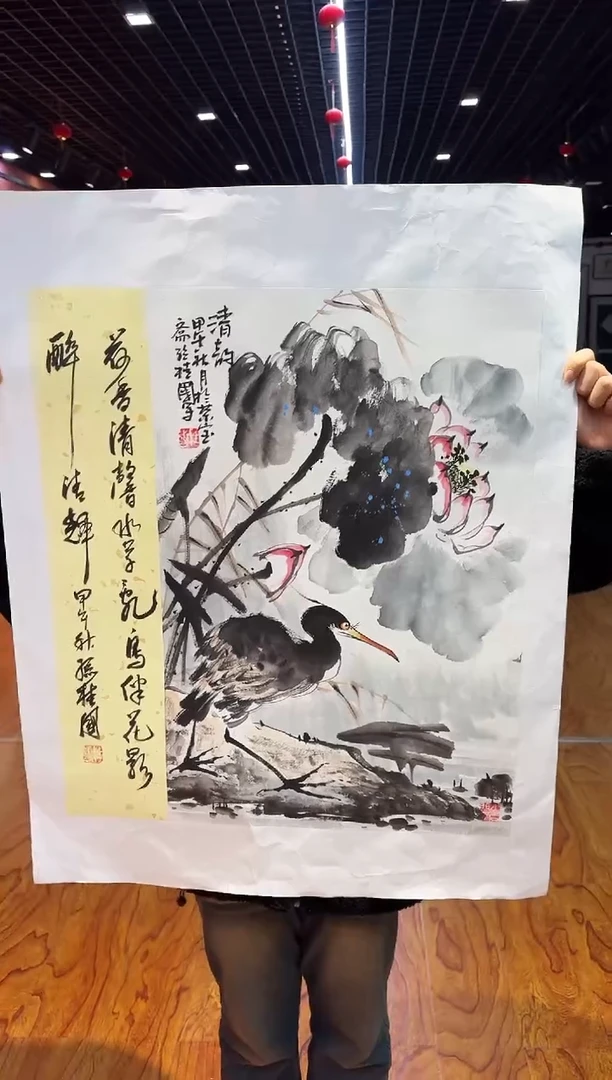 清韵
甲午秋月於荣宝
斋孫桂國写
荷香清馨水草乱鸟伴花影
醉清輝甲午秋孫桂國